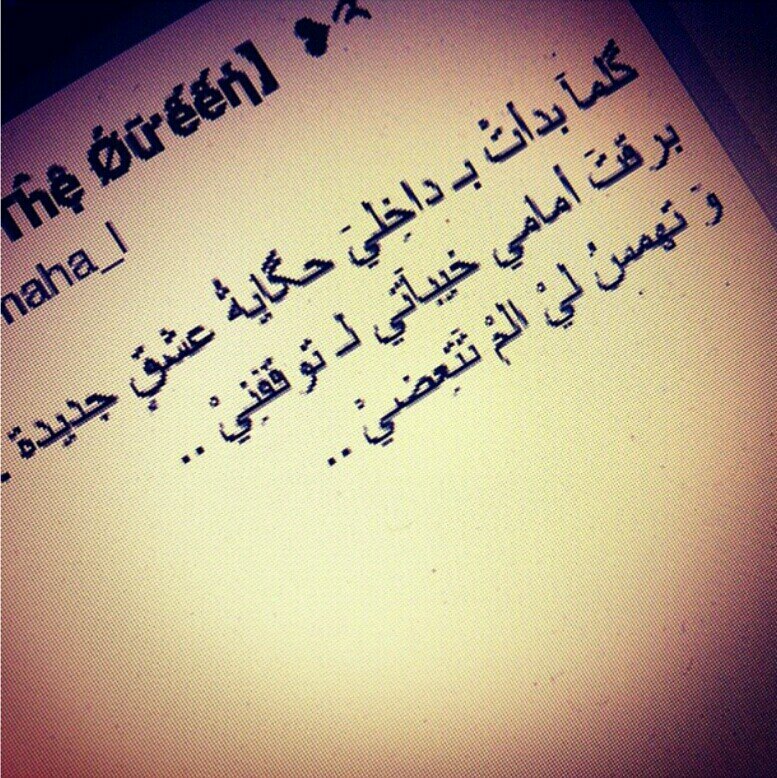 Thệ Qūrẹ́ẹ́ń]
naha_l
گلماَ بدأتْ بـ داخِليَ حگايهُ عشقٍ جديدة .
برقتَ أمامي خيباَتي لـ توقفنِيْ ..
وَ تهمسُ ليْ ألمْ تتَعِضيْ ..